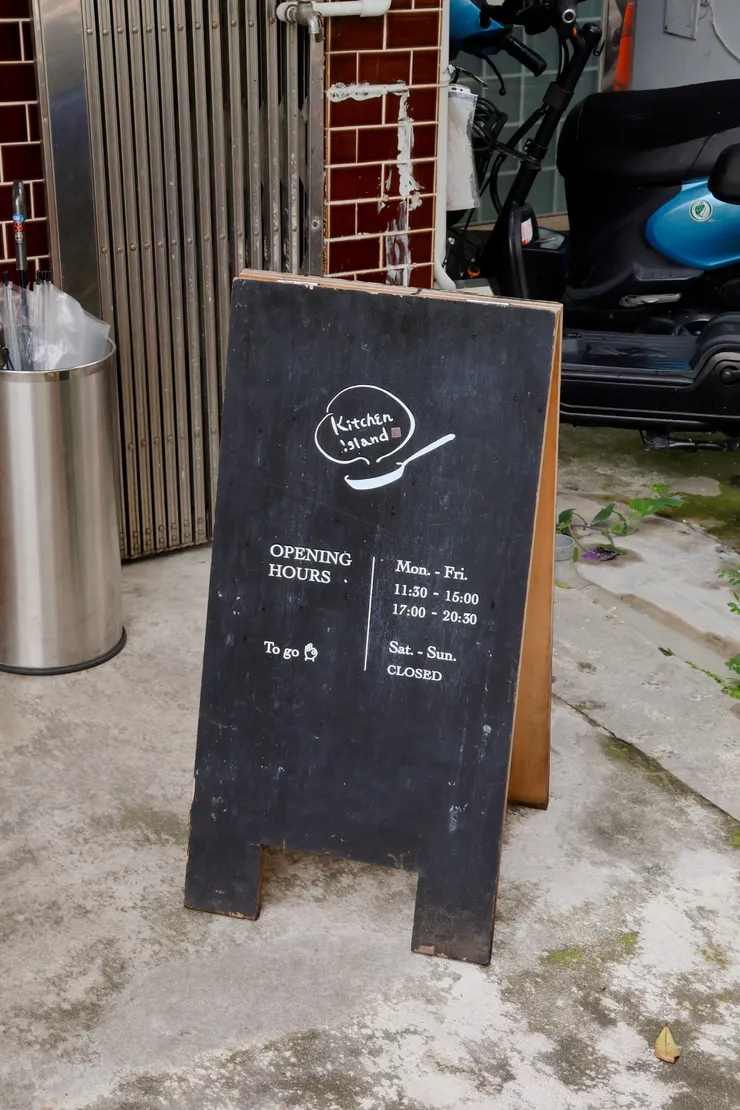 Kitchen
island
OPENING
HOURS
To go
Mon. - Fri.
11:30 - 15:00
17:00 - 20:30
Sat. - Sun.
CLOSED